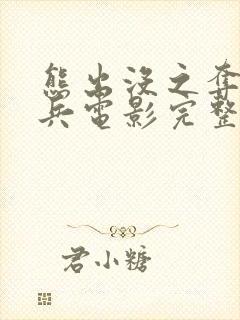 熊出没之夺
兵电影完整
君小糖